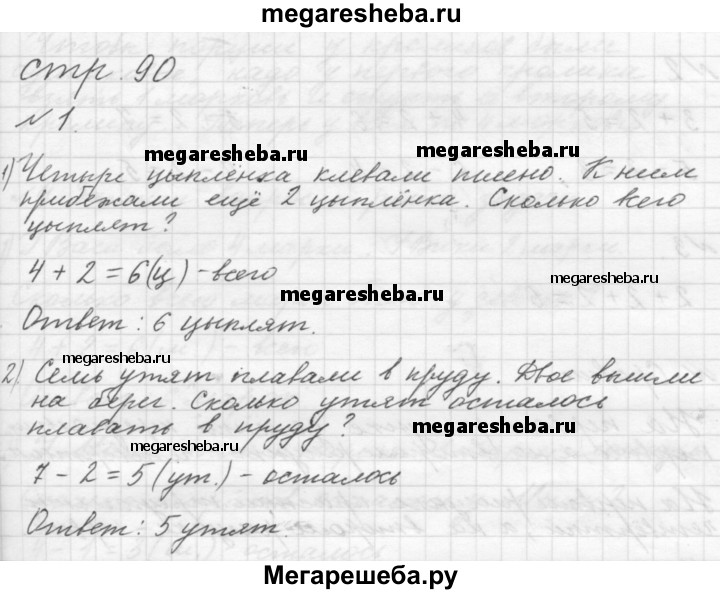 megaresheba.ru
стр. 90
№1.
megaresheba.ru
megaresheba.ru
1) Четыре цыплёнка клевали пшено. К ним
прибежали ещё 2 цыплёнка. Сколько всего
цыплят?
4 + 2 = 6 (ц) - всего
megaresheba.ru
megaresheba.ru
Ответ: 6 цыплят.
megaresheba.ru
2) Семь утят плавали в пруду. Двое вышли
на берег. Сколько утят осталось
плавать в пруду?
megaresheba.ru
megaresheba.ru
7 - 2 = 5 (ут.) - осталось
Ответ: 5 утят.
megaresheba.ru
Мегарешеба.ру